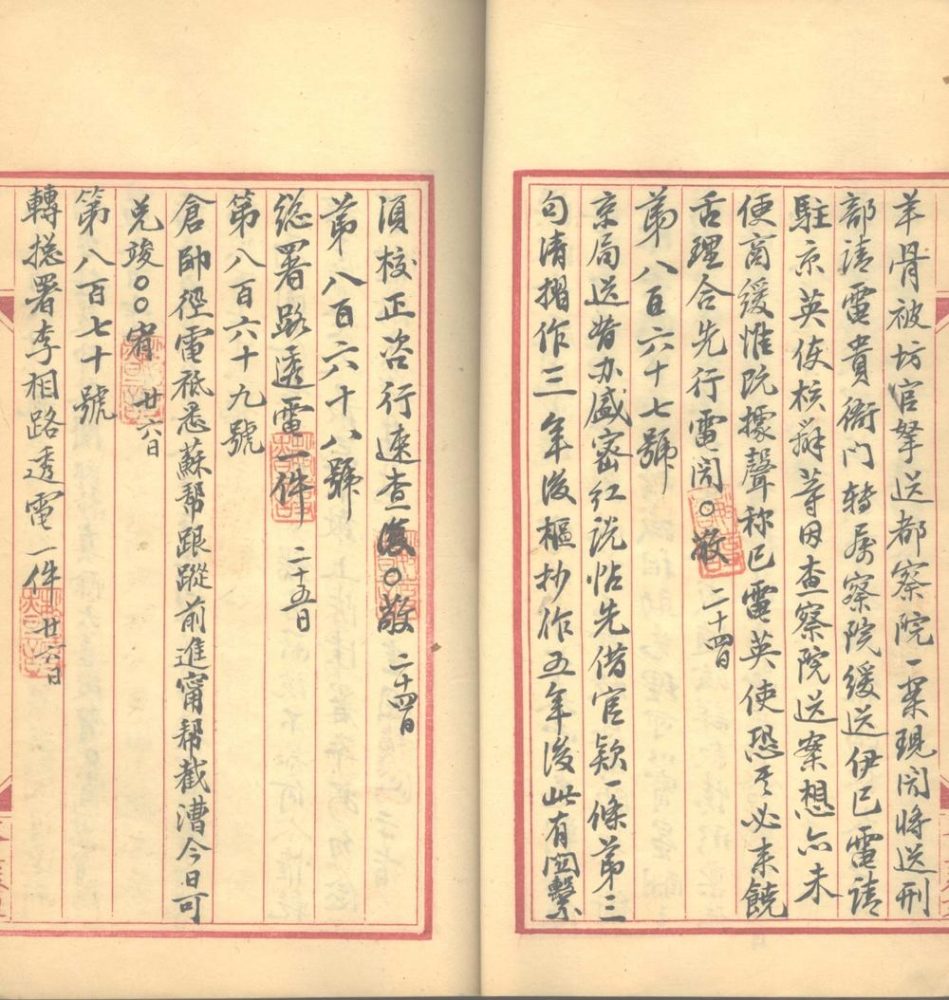 羊骨被坊官拏送都察院一案現聞將送刑
部請電貴衙门轉属察院緩送伊已電請
駐京英使核辦等因查察院送案想亦未
便商緩惟既據聲称已電英使恐其必来饒
舌理合先行電闻〇敬 二十四日
第八百六十七號
京局送昔办盛密红说帖先借官款一條第三
句清摺作三年後樞抄作五年後此有関繫
須校正咨行速查復〇敬 二十四日
第八百六十八號
總署路透電一件 二十五日
第八百六十九號
倉帥徑電祗悉蘇帮跟蹤前進甯帮截漕今日可
兑竣〇〇宥 廿六日
第八百七十號
轉摠署李相路透電一件 廿六日